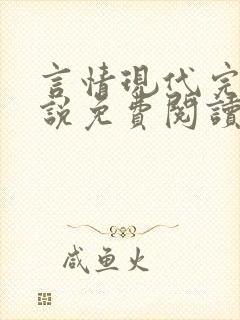 言情現代完
說免費閱讀
咸鱼火